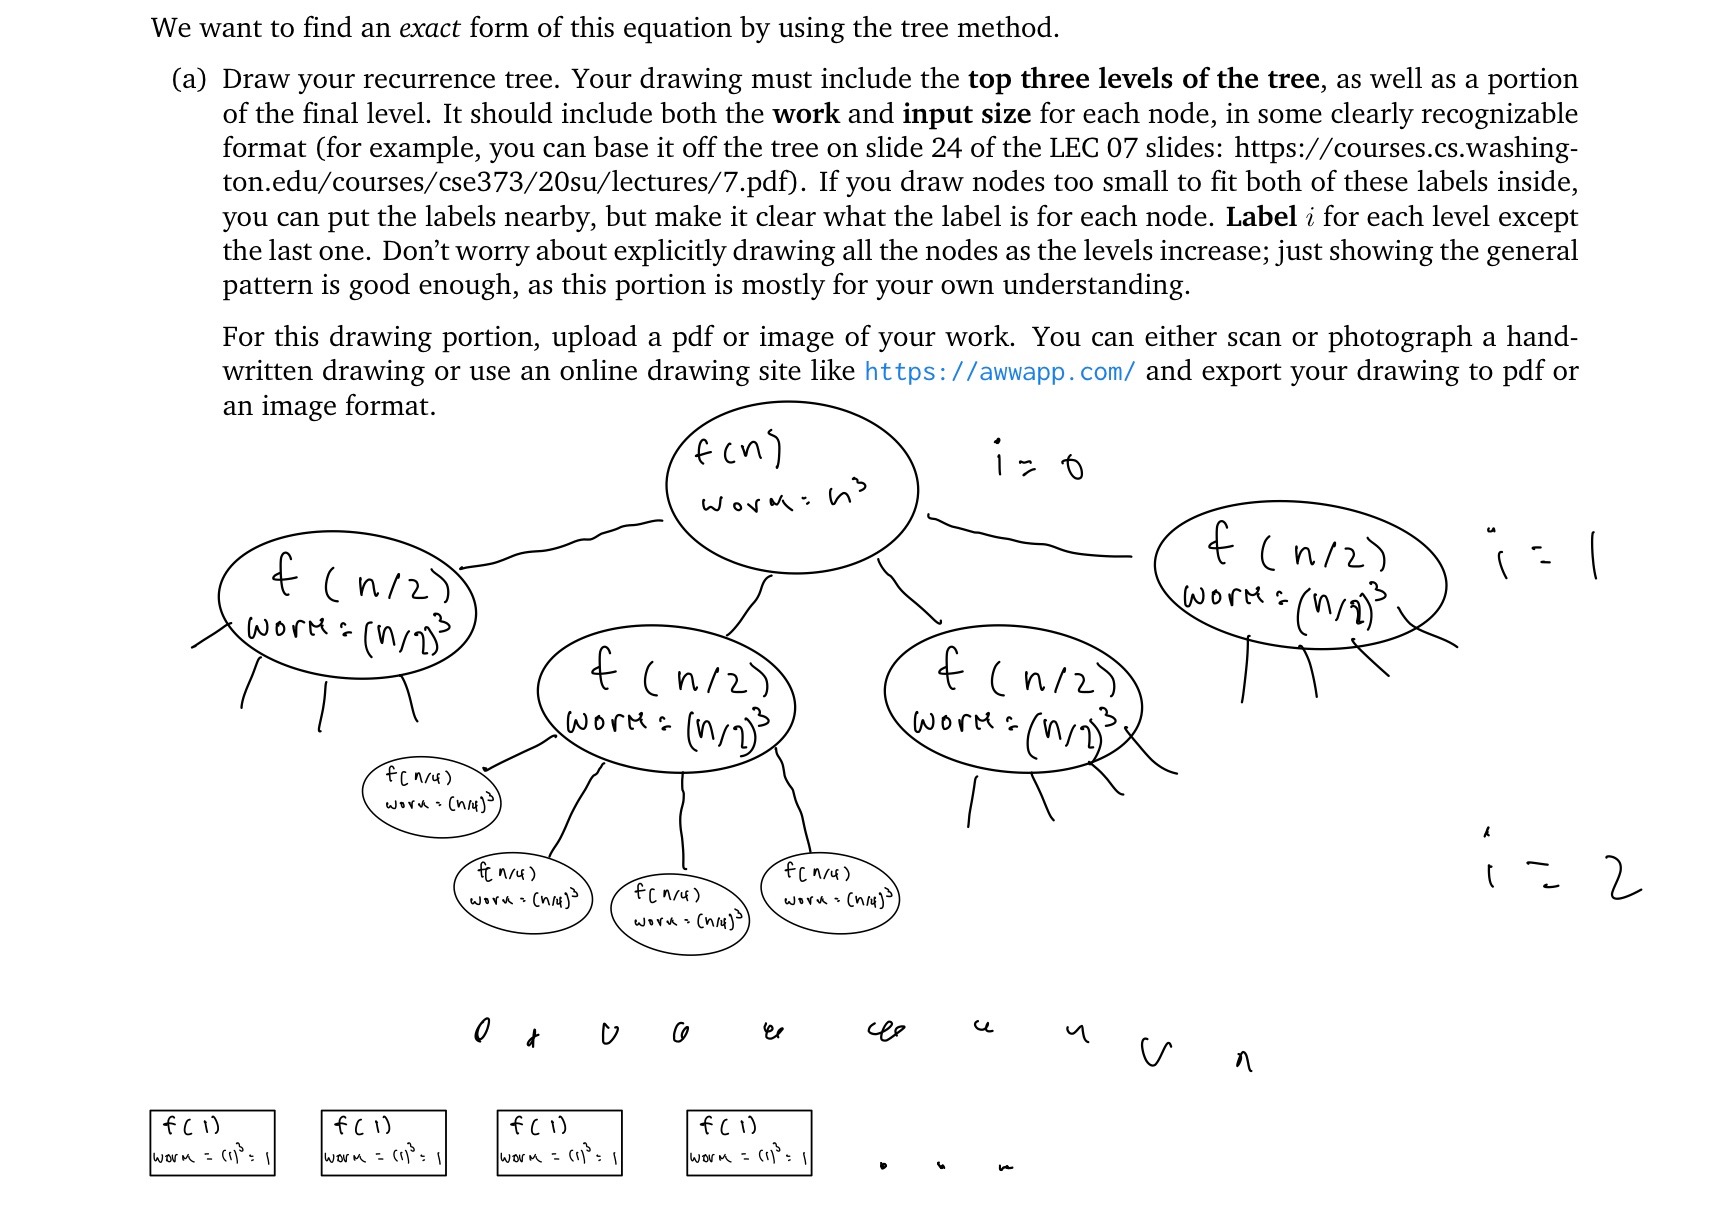 We want to find an exact form of this equation by using the tree method.
(a) Draw your recurrence tree. Your drawing must include the top three levels of the tree, as well as a portion
of the final level. It should include both the work and input size for each node, in some clearly recognizable
format (for example, you can base it off the tree on slide 24 of the LEC 07 slides: https://courses.cs.washing-
ton.edu/courses/cse373/20su/lectures/7.pdf). If you draw nodes too small to fit both of these labels inside,
you can put the labels nearby, but make it clear what the label is for each node. Label i for each level except
the last one. Don't worry about explicitly drawing all the nodes as the levels increase; just showing the general
pattern is good enough, as this portion is mostly for your own understanding.
For this drawing portion, upload a pdf or image of your work. You can either scan or photograph a hand-
written drawing or use an online drawing site like https://awwapp.com/ and export your drawing to pdf or
an image format.
f(n)
work = n³
i = 0
f(n/2)
work = (n/2)³
f(n/2)
work = (n/2)³
f(n/2)
work = (n/2)³
f(n/2)
work = (n/2)³
i = 1
f(n/4)
work = (n/4)³
f(n/4)
work = (n/4)³
f(n/4)
work = (n/4)³
f(n/4)
work = (n/4)³
i = 2
f(1)
work = (1)³ = 1
f(1)
work = (1)³ = 1
f(1)
work = (1)³ = 1
f(1)
work = (1)³ = 1
. . .